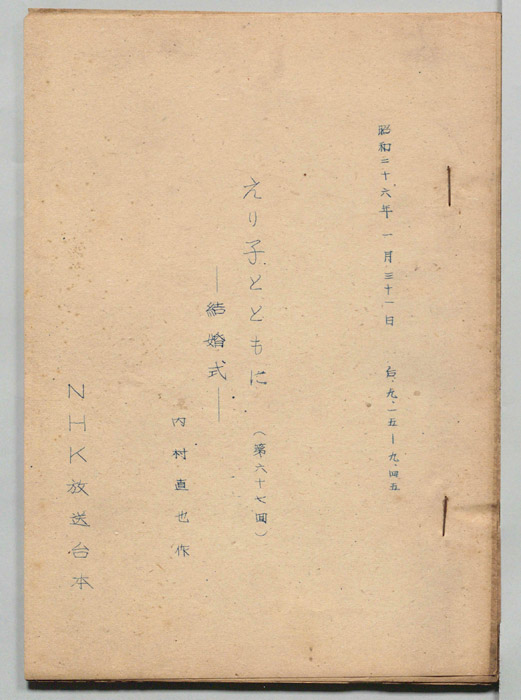 昭和二十六年一月三十一日　自.九.一五―九.四五
えり子とともに（第六十七回）
―結婚式―
内村直也作
NHK放送台本